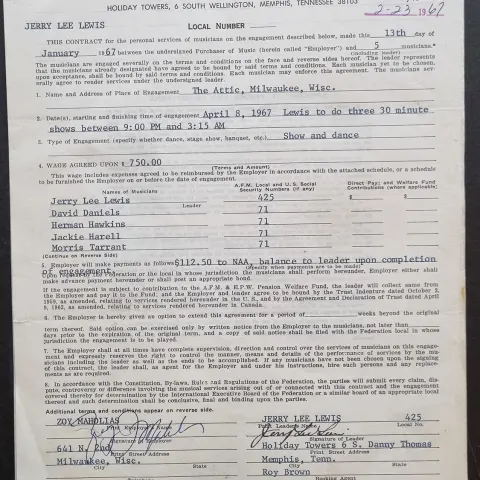 HOLIDAY TOWERS, 6 SOUTH WELLINGTON, MEMPHIS, TENNESSEE 38103
2-23 1967
JERRY LEE LEWIS
LOCAL NUMBER
THIS CONTRACT for the personal services of musicians on the engagement described below, made this 13th day of
January 1967 between the undersigned Purchaser of Music (herein called "Employer") and 5 musicians.
(including leader)
The musicians are engaged severally on the terms and conditions on the face and reverse sides hereof. The leader represents
that the musicians already designated have agreed to be bound by said terms and conditions. Each musician yet to be chosen,
upon acceptance, shall be bound by said terms and conditions. Each musician may enforce this agreement. The musicians severally
agree to render services under the undersigned leader.
1. Name and Address of Place of Engagement The Attic, Milwaukee, Wisc.
2. Date(s), starting and finishing time of engagement April 8, 1967 Lewis to do three 30 minute
shows between 9:00 PM and 3:15 AM
3. Type of Engagement (specify whether dance, stage show, banquet, etc.) Show and dance
4. WAGE AGREED UPON $ 750.00
(Terms and Amount)
This wage includes expenses agreed to be reimbursed by the Employer in accordance with the attached schedule, or a schedule
to be furnished the Employer on or before the date of engagement.
Names of Musicians
A.F.M. Local and U.S. Social Security Numbers (if any)
Direct Pay: and Welfare Fund Contributions (where applicable)
Jerry Lee Lewis Leader 425 $ $
David Daniels 71
Herman Hawkins 71
Jackie Harell 71
Morris Tarrant 71
(Continue on Reverse Side)
5. Employer will make payments as follows $112.50 to NAA, balance to leader upon completion
of engagement.
(Specify when payments are to be made)
Upon request by the Federation or the local in whose jurisdiction the musicians shall perform hereunder, Employer either shall
make advance payment hereunder or shall post an appropriate bond.
If the engagement is subject to contribution to the A.F.M. & E.P.W. Pension Welfare Fund, the leader will collect same from
the Employer and pay it to the Fund; and the Employer and leader agree to be bound by the Trust Indenture dated October 2,
1959, as amended, relating to services rendered hereunder in the U.S., and by the Agreement and Declaration of Trust dated April
9, 1962, as amended, relating to services rendered hereunder in Canada.
6. The Employer is hereby given an option to extend this agreement for a period of weeks beyond the original
term thereof. Said option can be exercised only by written notice from the Employer to the musicians, not later than
days prior to the expiration of the original term, and a copy of said notice shall be filed with the Federation local in whose
jurisdiction the engagement is to be played.
7. The Employer shall at all times have complete supervision, direction and control over the services of musicians on this engagement
and expressly reserves the right to control the manner, means and details of the performance of services by the musicians
including the leader as well as the ends to be accomplished. If any musicians have not been chosen upon the signing
of this contract, the leader shall, as agent for the Employer and under his instructions, hire such persons and any replacements
as are required.
8. In accordance with the Constitution, By-laws, Rules and Regulations of the Federation, the parties will submit every claim, dispute,
controversy or difference involving the musical services arising out of or connected with this contract and the engagement
covered thereby for determination by the International Executive Board of the Federation or a similar board of an appropriate local
thereof and such determination shall be conclusive, final and binding upon the parties.
Additional terms and conditions appear on reverse side.
ZOY MAHOLIAS
Print Employer's Name
JERRY LEE LEWIS 425
Print Leader's Name Local No.
Signature of Employer
Jerry Lee Lewis
Signature of Leader
641 N. 2nd
Print Street Address
Holiday Towers 6 S. Danny Thomas
Print Street Address
Milwaukee, Wisc.
City State
Memphis, Tenn.
City State
Roy Brown
Booking Agent